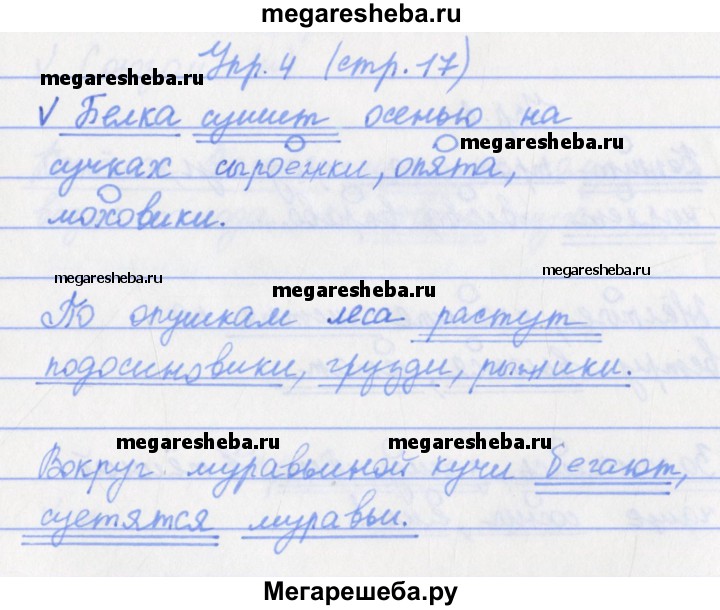 megaresheba.ru
Упр. 4 (стр. 17)
megaresheba.ru
√ Белка сушит осенью на
megaresheba.ru
сучках сыроежки, опята,
моховики.
megaresheba.ru
megaresheba.ru
megaresheba.ru
По опушкам леса растут
подосиновики, грузди, рыжики.
megaresheba.ru
megaresheba.ru
Вокруг муравьиной кучи бегают,
суетятся муравьи.
Мегарешеба.ру